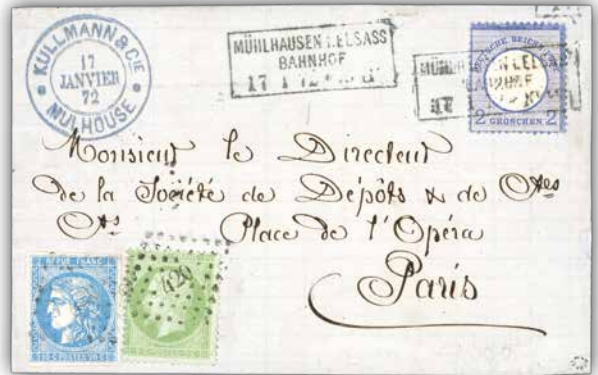 KULLMANN & CIE
17
JANVIER
72
MULHOUSE
MÜHLHAUSEN I. ELSASS
BAHNHOF
17 1 72
DEUTSCHE REICHS
2 GROSCHEN 2
Monsieur le Directeur
de la Société de Dépôts & de Ctes
Cts Place de l'Opéra
Paris
REPUB. FRANC.
20 C POSTES 20 C